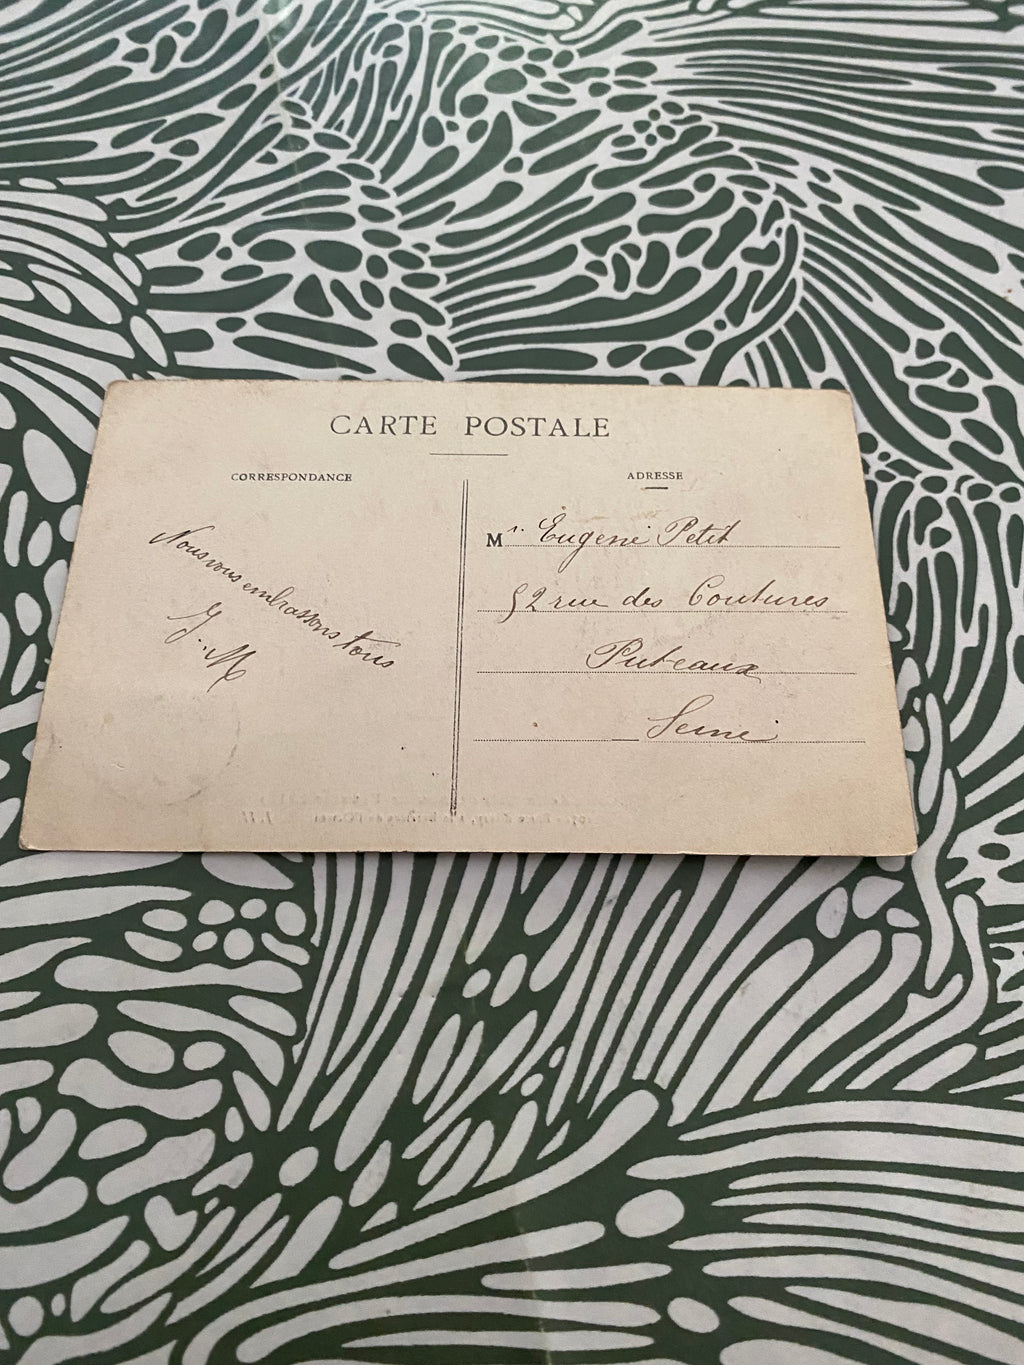 CARTE POSTALE
CORRESPONDANCE
Nous vous embrassons tous
ADRESSE
Mr. Eugène Petit
52 rue des Coutures
Puteaux
Seine